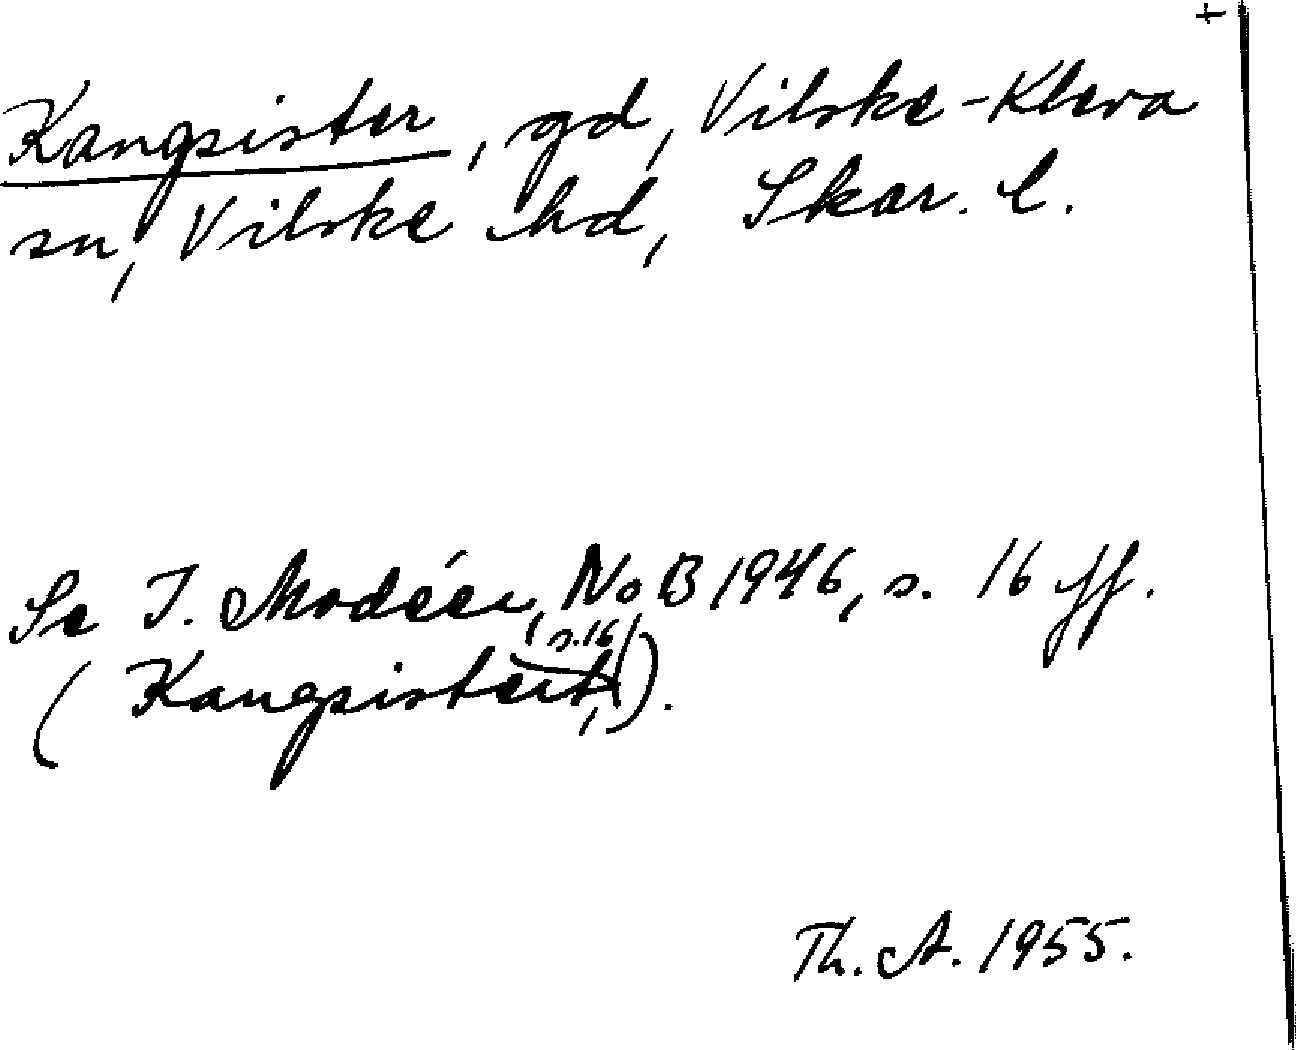 +
Kangsister, gd, Vilske-Kleva
sn, Vilske hd, Skar. l.
Se I. Modéer, NoB 1946, s. 16 ff.
s. 16
(Kangsistert,).
Th. A. 1955.